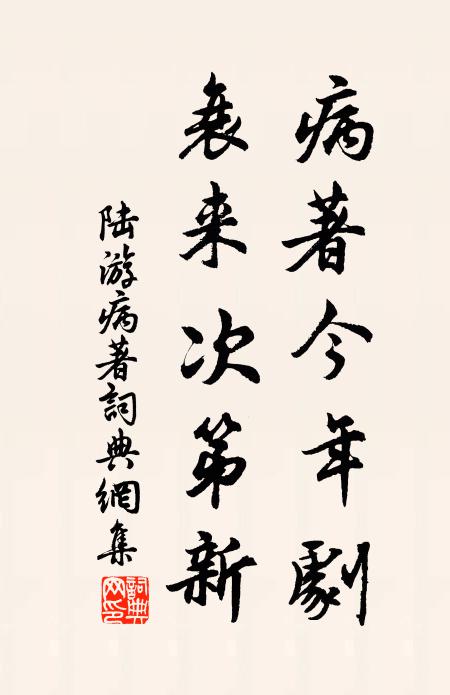 病著今年劇
衰来次第新
陆游病著詞典網集
詞典网印